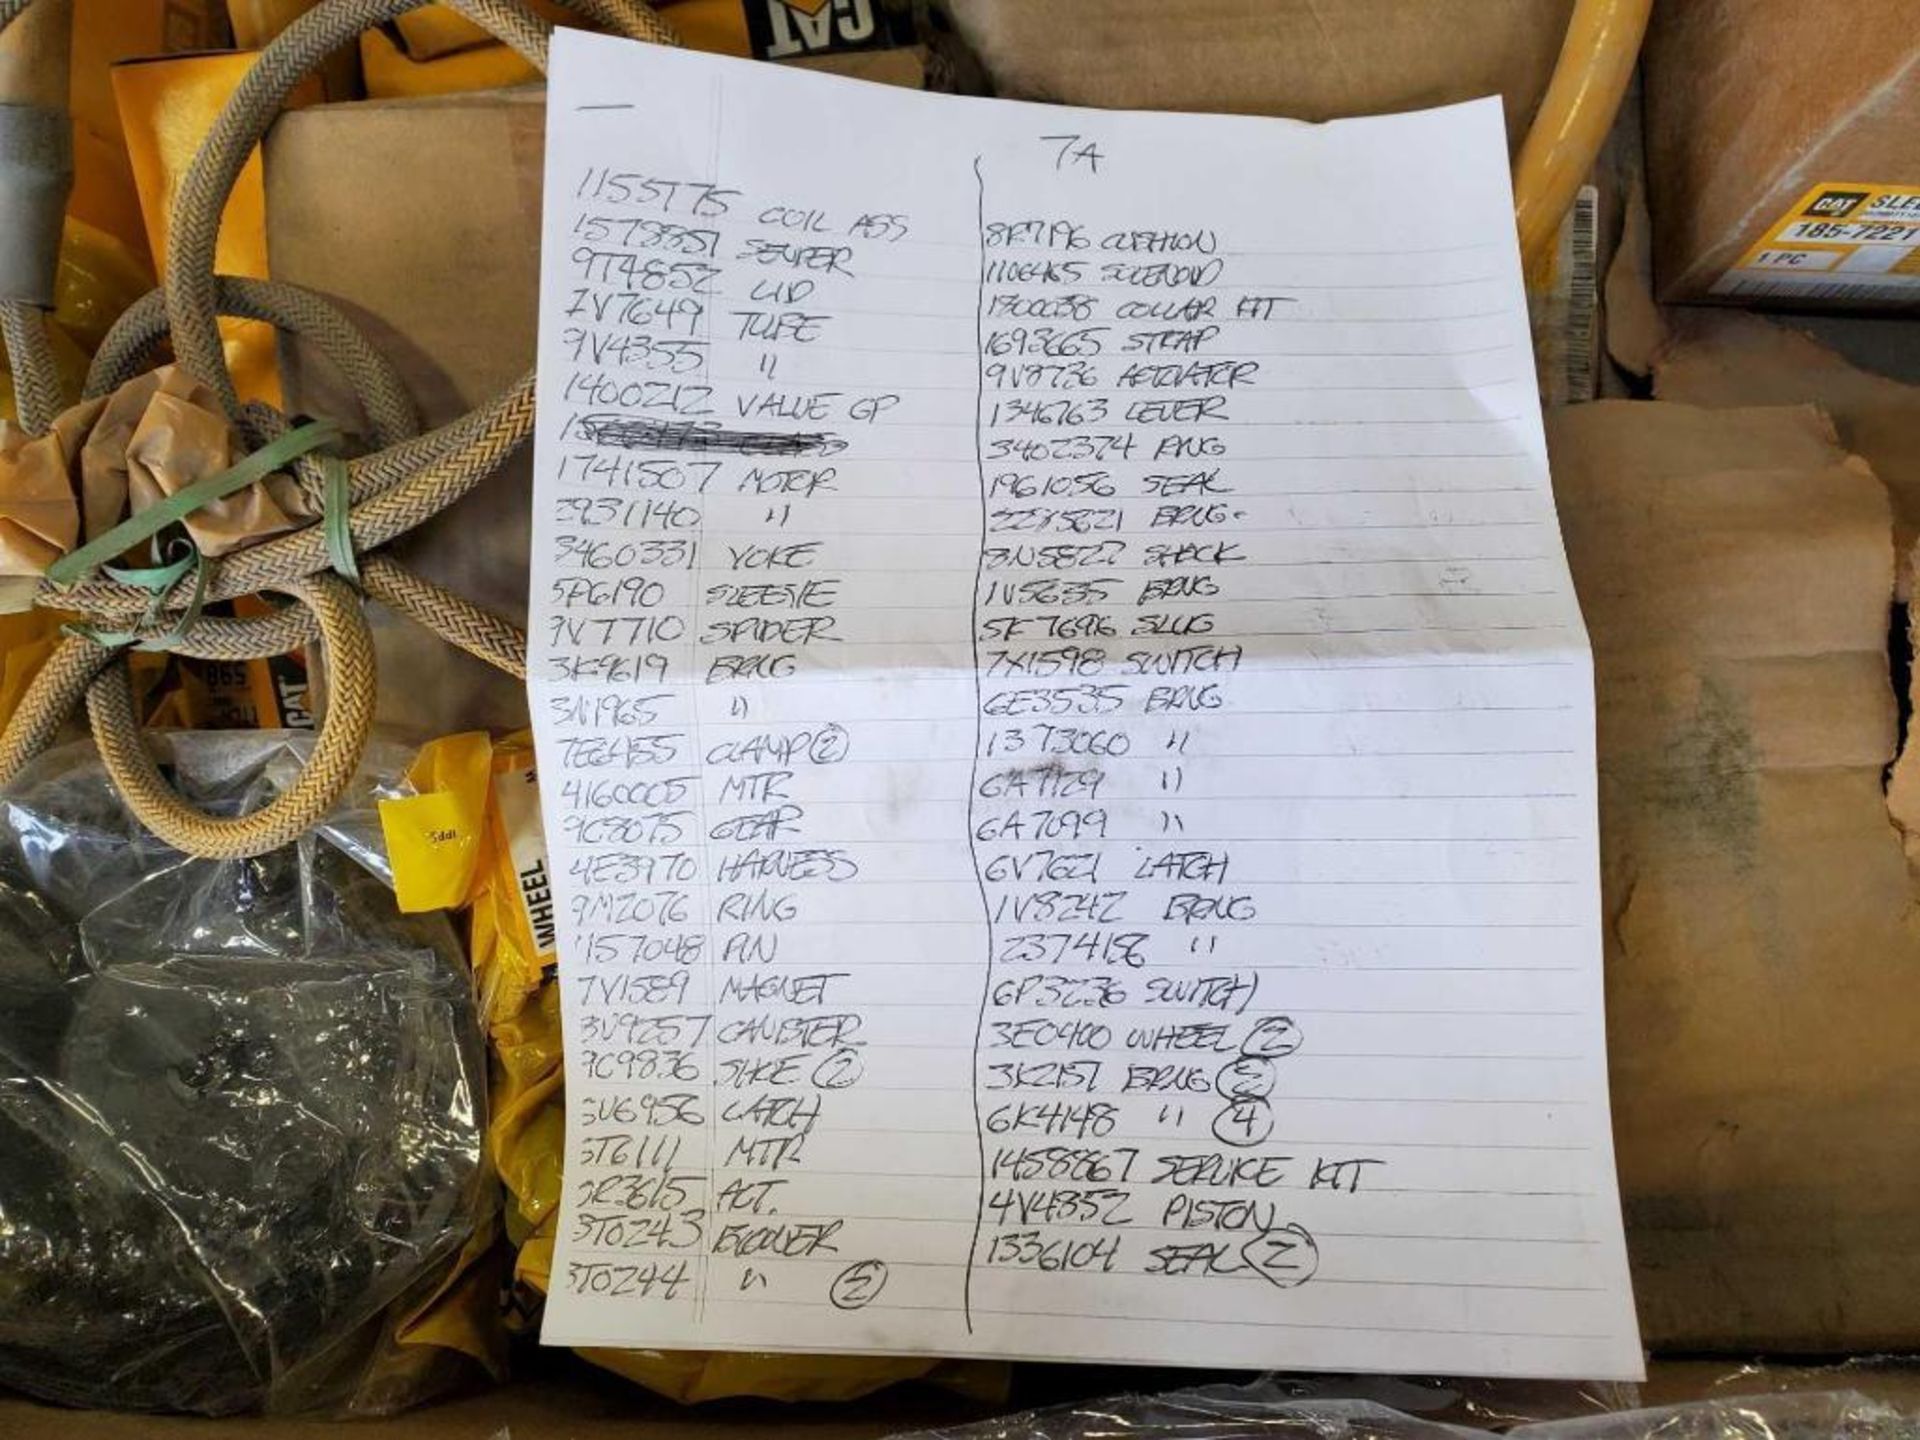 CAT
7A
1155775 COIL ASS
1578851 SENDER
9T4852 LID
7V7649 TUBE
9V4355 "
1400212 VALUE GP
1741507 MOTOR
3931140 "
3460331 YOKE
5P6190 SLEEVE
9V7710 SPIDER
3K9619 BRNG
3N1965 "
7E6455 CLAMP (2)
4160005 MTR
9C8075 GEAR
4E3970 HARNESS
9M2076 RING
157048 PIN
7V1589 MAGNET
3V9257 CANISTER
9C9836 SHOE (2)
LATCH
MTR
ACT.
3T0243 BLOWER
3T0244 " (2)
8R7196 CUSHION
1106465 SOLENOID
1800038 COLLAR KIT
1693665 STRAP
9V8736 ACTUATOR
1346763 LEVER
3402374 RNG
1961056 SEAL
BRNG.
8N5822 SHACK
1V5635 BRNG
5K7696 SLUG
7X1598 SWITCH
6E3535 BRNG
1373060 "
6A7129 "
6A7099 "
6V7621 LATCH
1V8242 BRNG
2374156 "
6P3236 SWITCH
3E0400 WHEEL (2)
3K2157 BRNG
6K4148 " (4)
1458867 SERVICE KIT
4V4352 PISTON
1336104 SEAL (2)
CAT
185-7221
1 PC
CAT
598
WHEEL